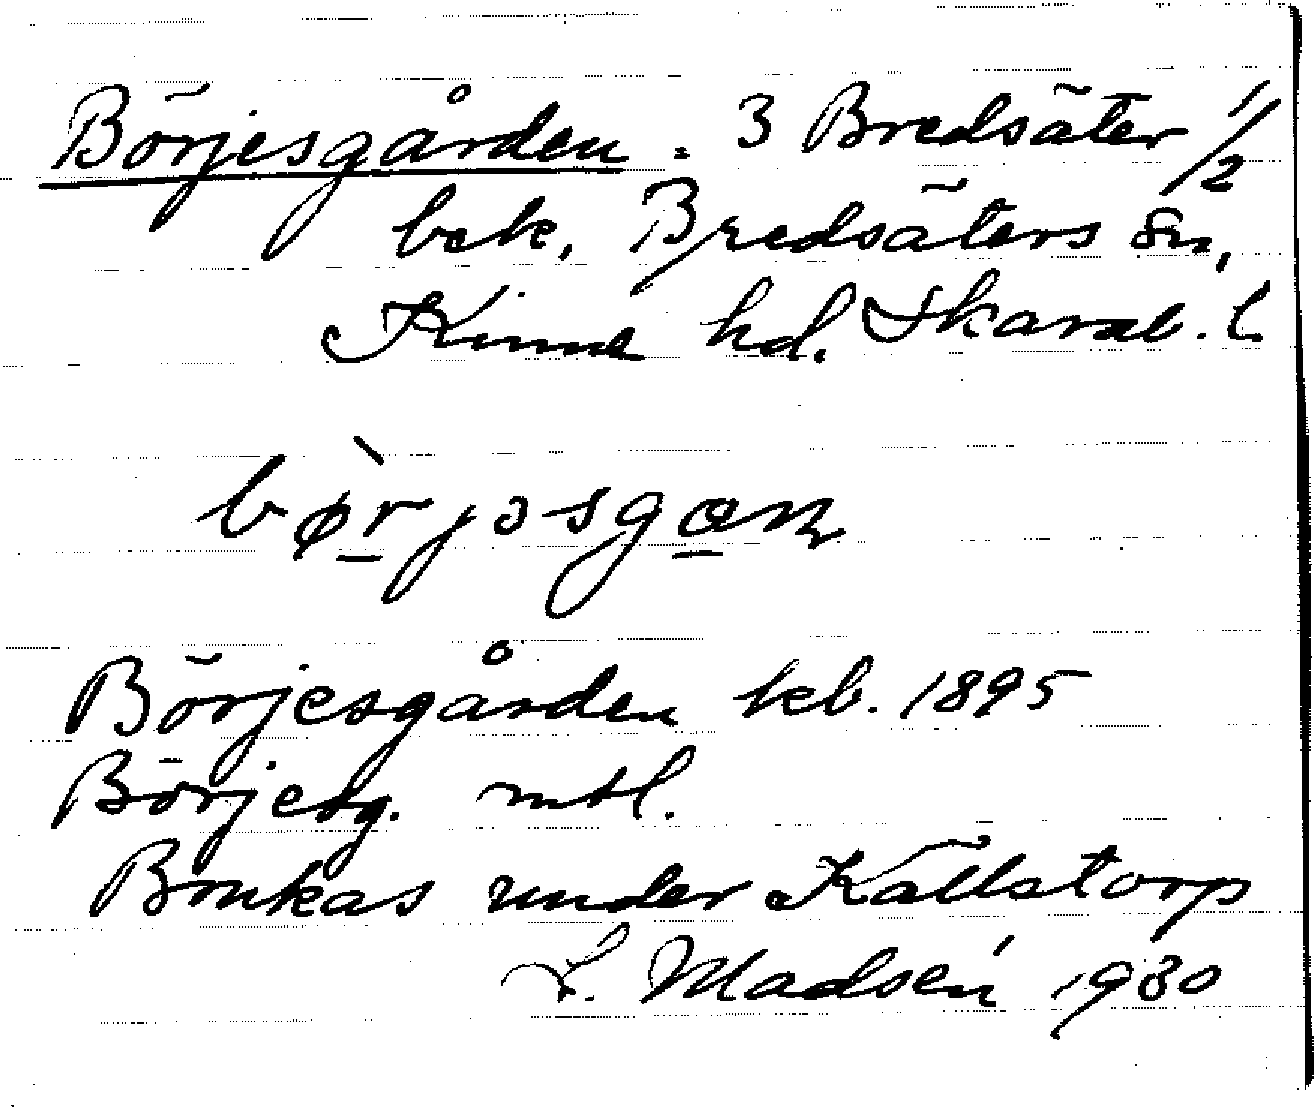 Börjesgården. 3 Bredsäter 1/2
bek. Bredsäters sn,
Kinne hd. Skarab. l.
bø̀rjəsgɑn
Börjesgården kb. 1895
Börjesg. mtl.
Brukas under Källstorp
L. Madsén 1930